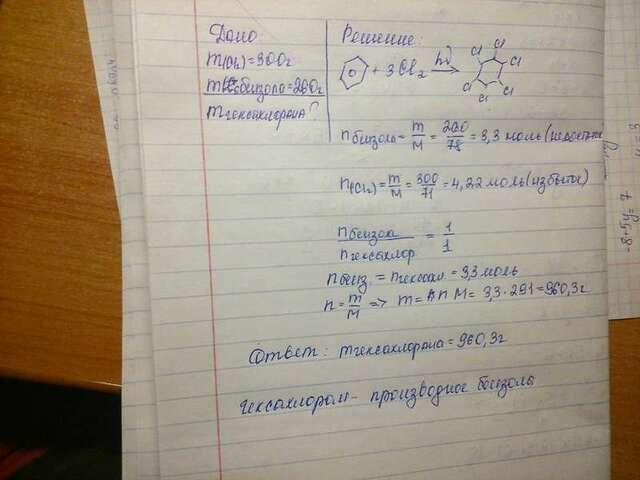 Дано
m(Cl₂)=300г
m бензола=260г
m гексахлорана?
Решение:
+ 3Cl₂ hν → Cl Cl Cl Cl Cl Cl
n бензола = m/M = 260/78 = 3,3 моль (недостаток)
n(Cl₂) = m/M = 300/71 = 4,22 моль (избыток)
n бензол / n гексахлор = 1/1
n бенз. = n гексахл = 3,3 моль
n = m/M => m = n M = 3,3·291 = 960,3г
Ответ: m гексахлорана = 960,3г
гексахлоран - производное бензола